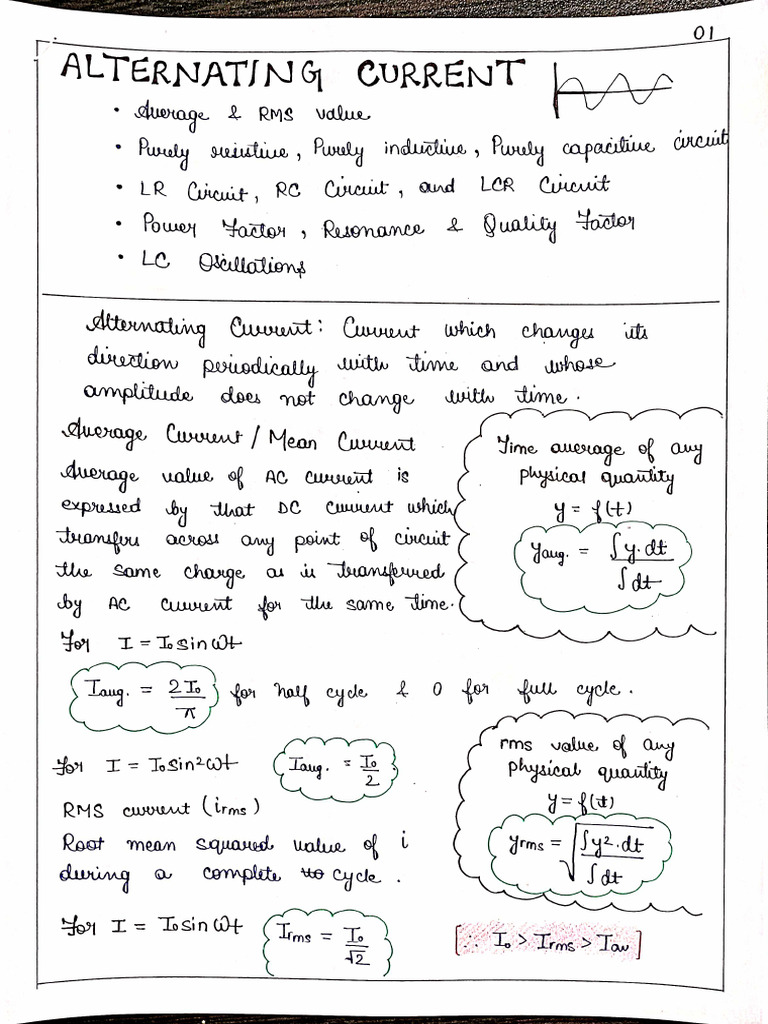 01
ALTERNATING CURRENT
• Average & RMS value
• Purely resistive, Purely inductive, Purely capacitive circuit
• LR Circuit, RC Circuit, and LCR Circuit
• Power Factor, Resonance & Quality Factor
• LC Oscillations
Alternating Current: Current which changes its
direction periodically with time and whose
amplitude does not change with time.
Average Current / Mean Current
Average value of AC current is
expressed by that DC current which
transfers across any point of circuit
the same charge as is transferred
by AC current for the same time.
Time average of any
physical quantity
y = f(t)
yavg. = ∫y.dt / ∫dt
For I = I₀ sin ωt
Iavg. = 2I₀/π for half cycle & 0 for full cycle.
For I = I₀ sin²ωt Iavg. = I₀/2
RMS current (irms)
Root mean squared value of i
during a complete cycle.
rms value of any
physical quantity
y = f(t)
yrms = √(∫y².dt / ∫dt)
For I = I₀ sin ωt Irms = I₀/√2
[∴ I₀ > Irms > Iav]